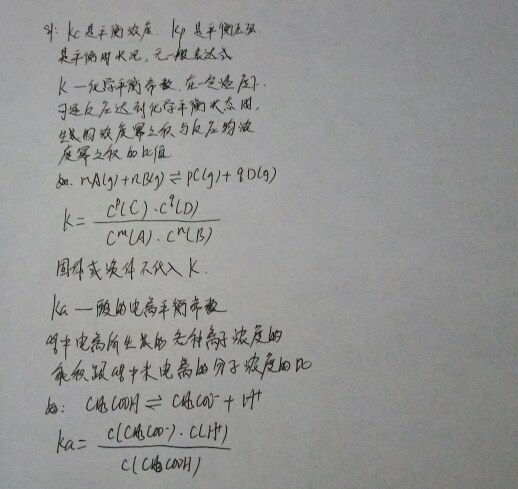 外: Kc是平衡浓度. Kp是平衡压强
是平衡时状况, 无一般表达式
K—化学平衡常数. 在一定温度下.
可逆反应达到化学平衡状态时,
生成的浓度幂之积与反应物浓
度幂之积的比值
如. mA(g)+nB(g)⇌pC(g)+qD(g)
K= c^p(C)·c^q(D) / c^m(A)·c^n(B)
固体或液体不代入K.
Ka—酸的电离平衡常数
溶中电离所生成的各种离子浓度的
乘积跟溶中未电离的分子浓度的比
如: CH3COOH⇌CH3COO⁻+H⁺
Ka= c(CH3COO⁻)·c(H⁺) / c(CH3COOH)